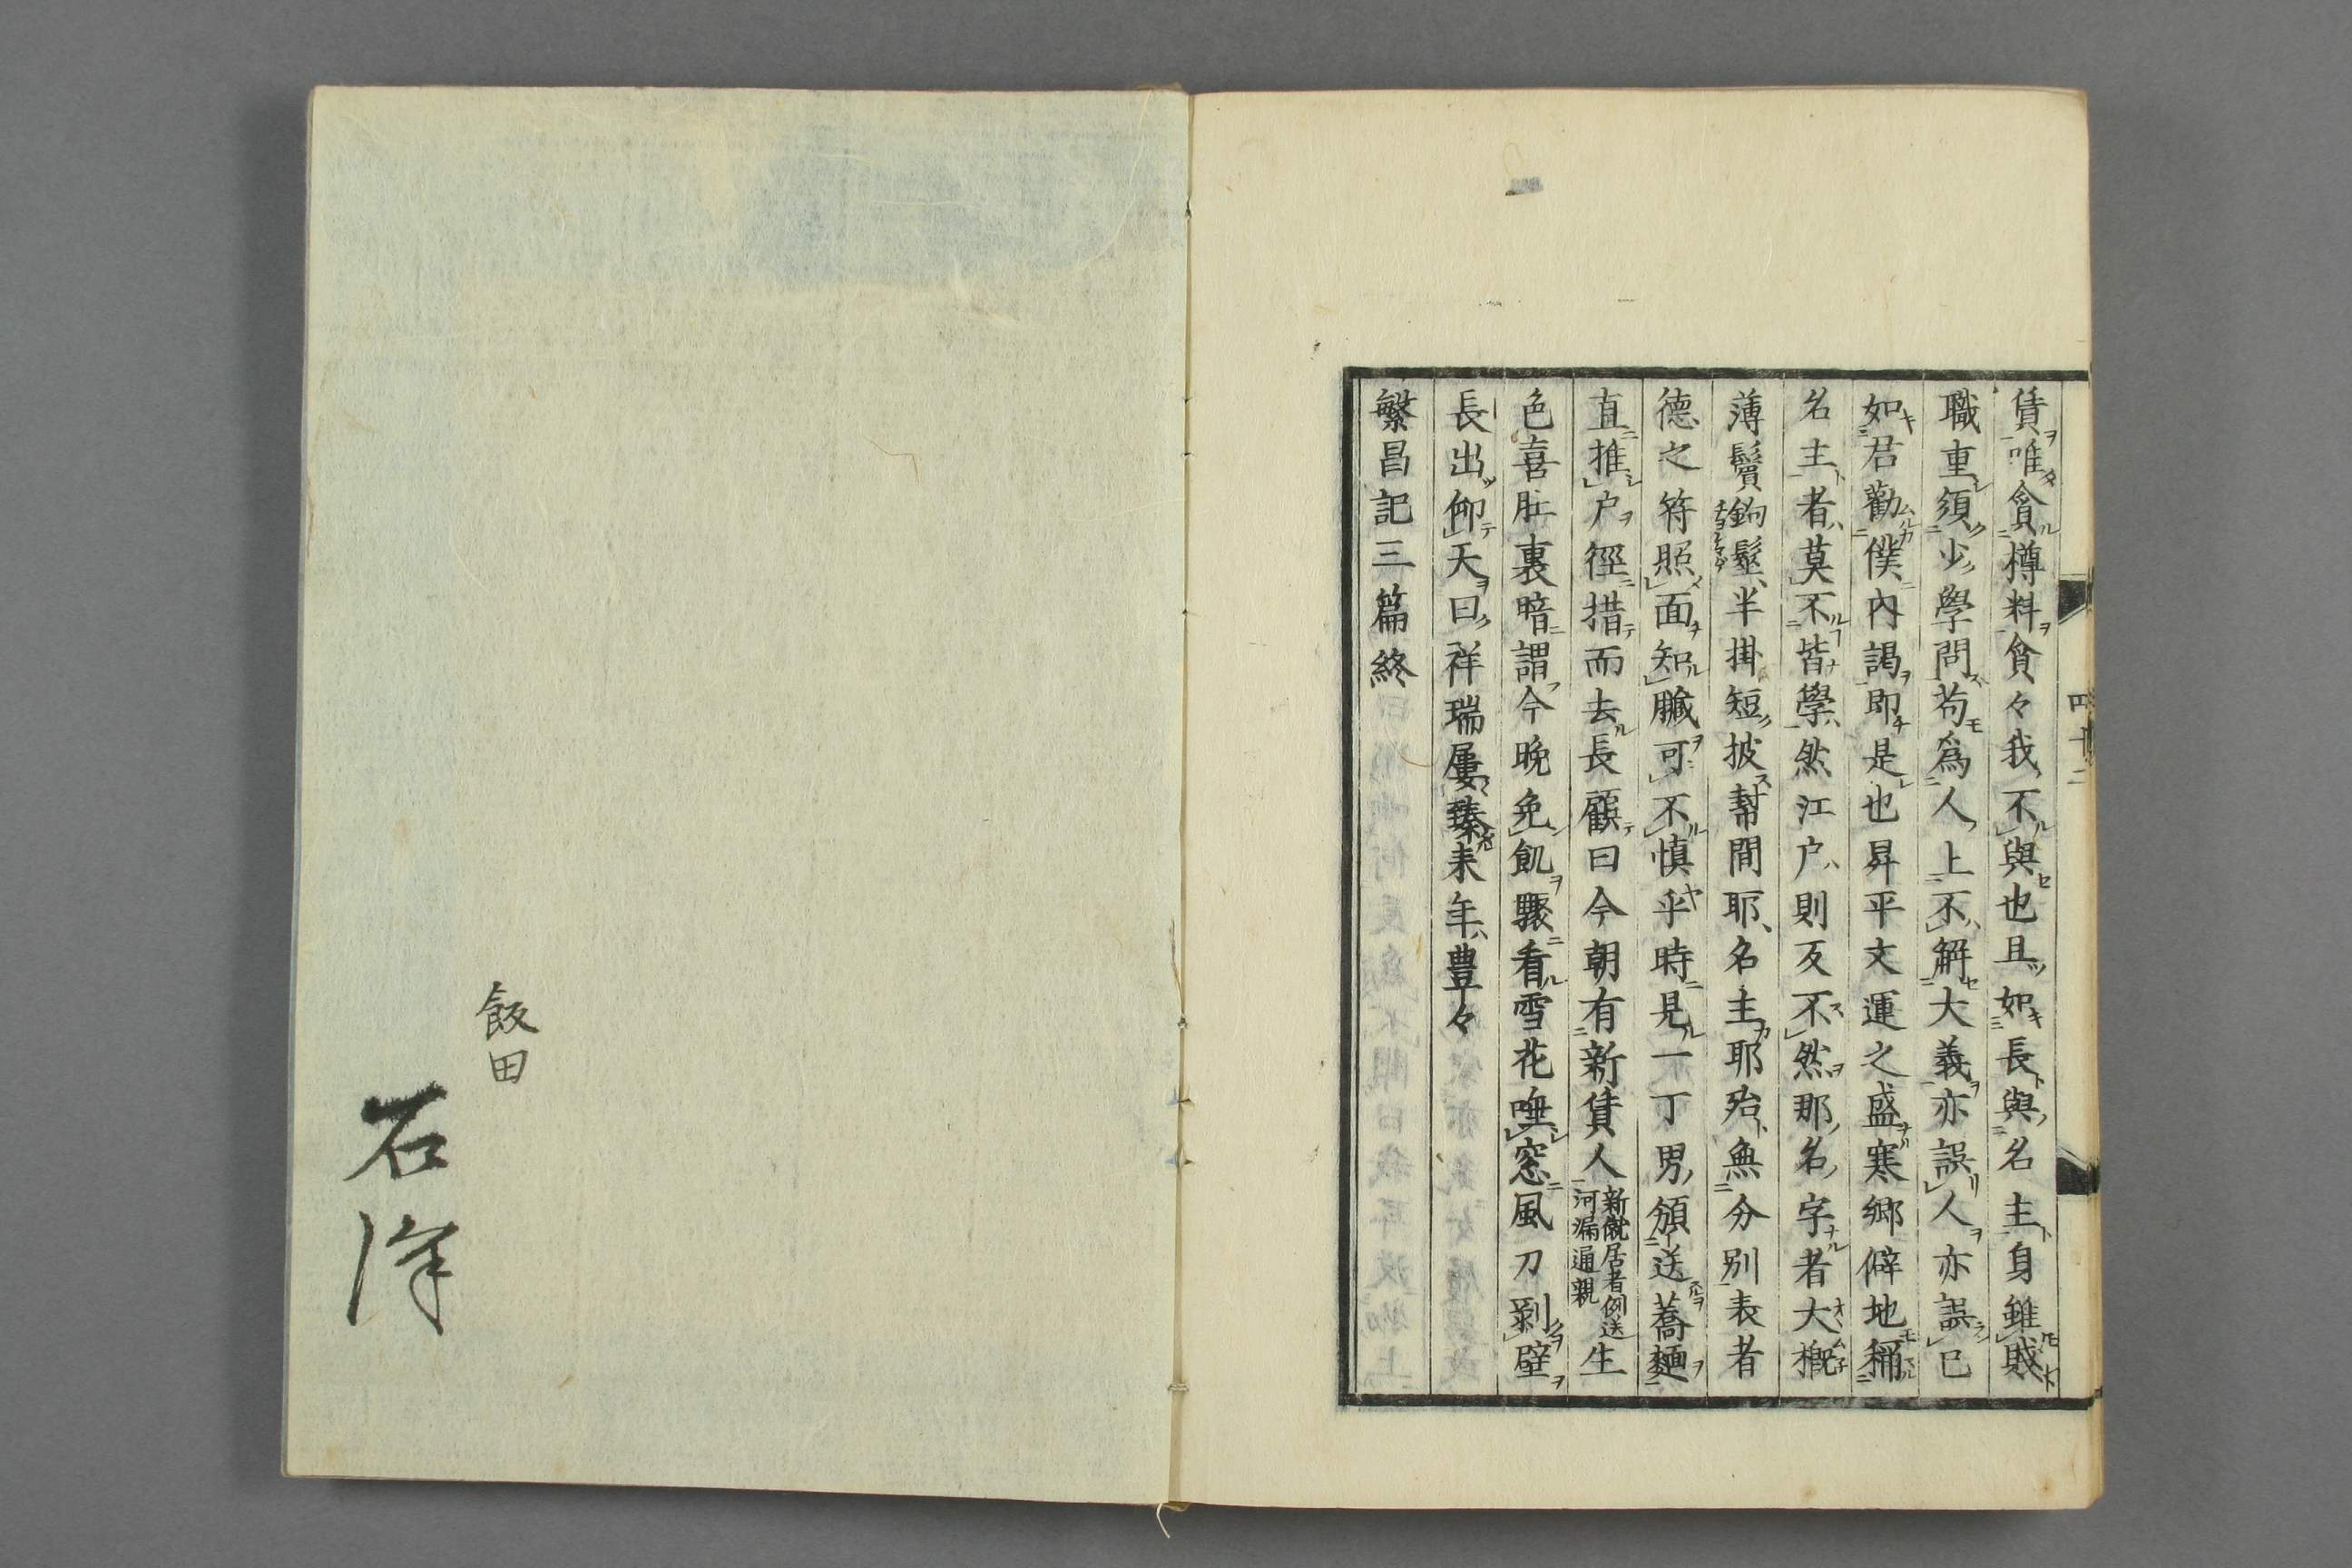 賃唯貪樽料貪々我不與也且如長與名主身雖賤
職重須少學問苟爲人上不解大義亦誤人亦誤已
如君勸僕內謁即是也昇平文運之盛寒郷僻地稱
名主者莫不皆學然江户則反不然那名字者大槪
薄鬢鉤髷半掛短披幇間耶名主耶殆無分別表者
德之符照面知臟可不慎乎時見一丁男領送蕎麵
直推户徑措而去長顧曰今朝有新賃人新僦居者例送河漏遍親生
色喜肚裏暗謂今晚免飢驟看雪花嘸窓風刀剝壁
長出仰天曰祥瑞屢臻来年豊々
繁昌記三篇終
四十二
飯田
石